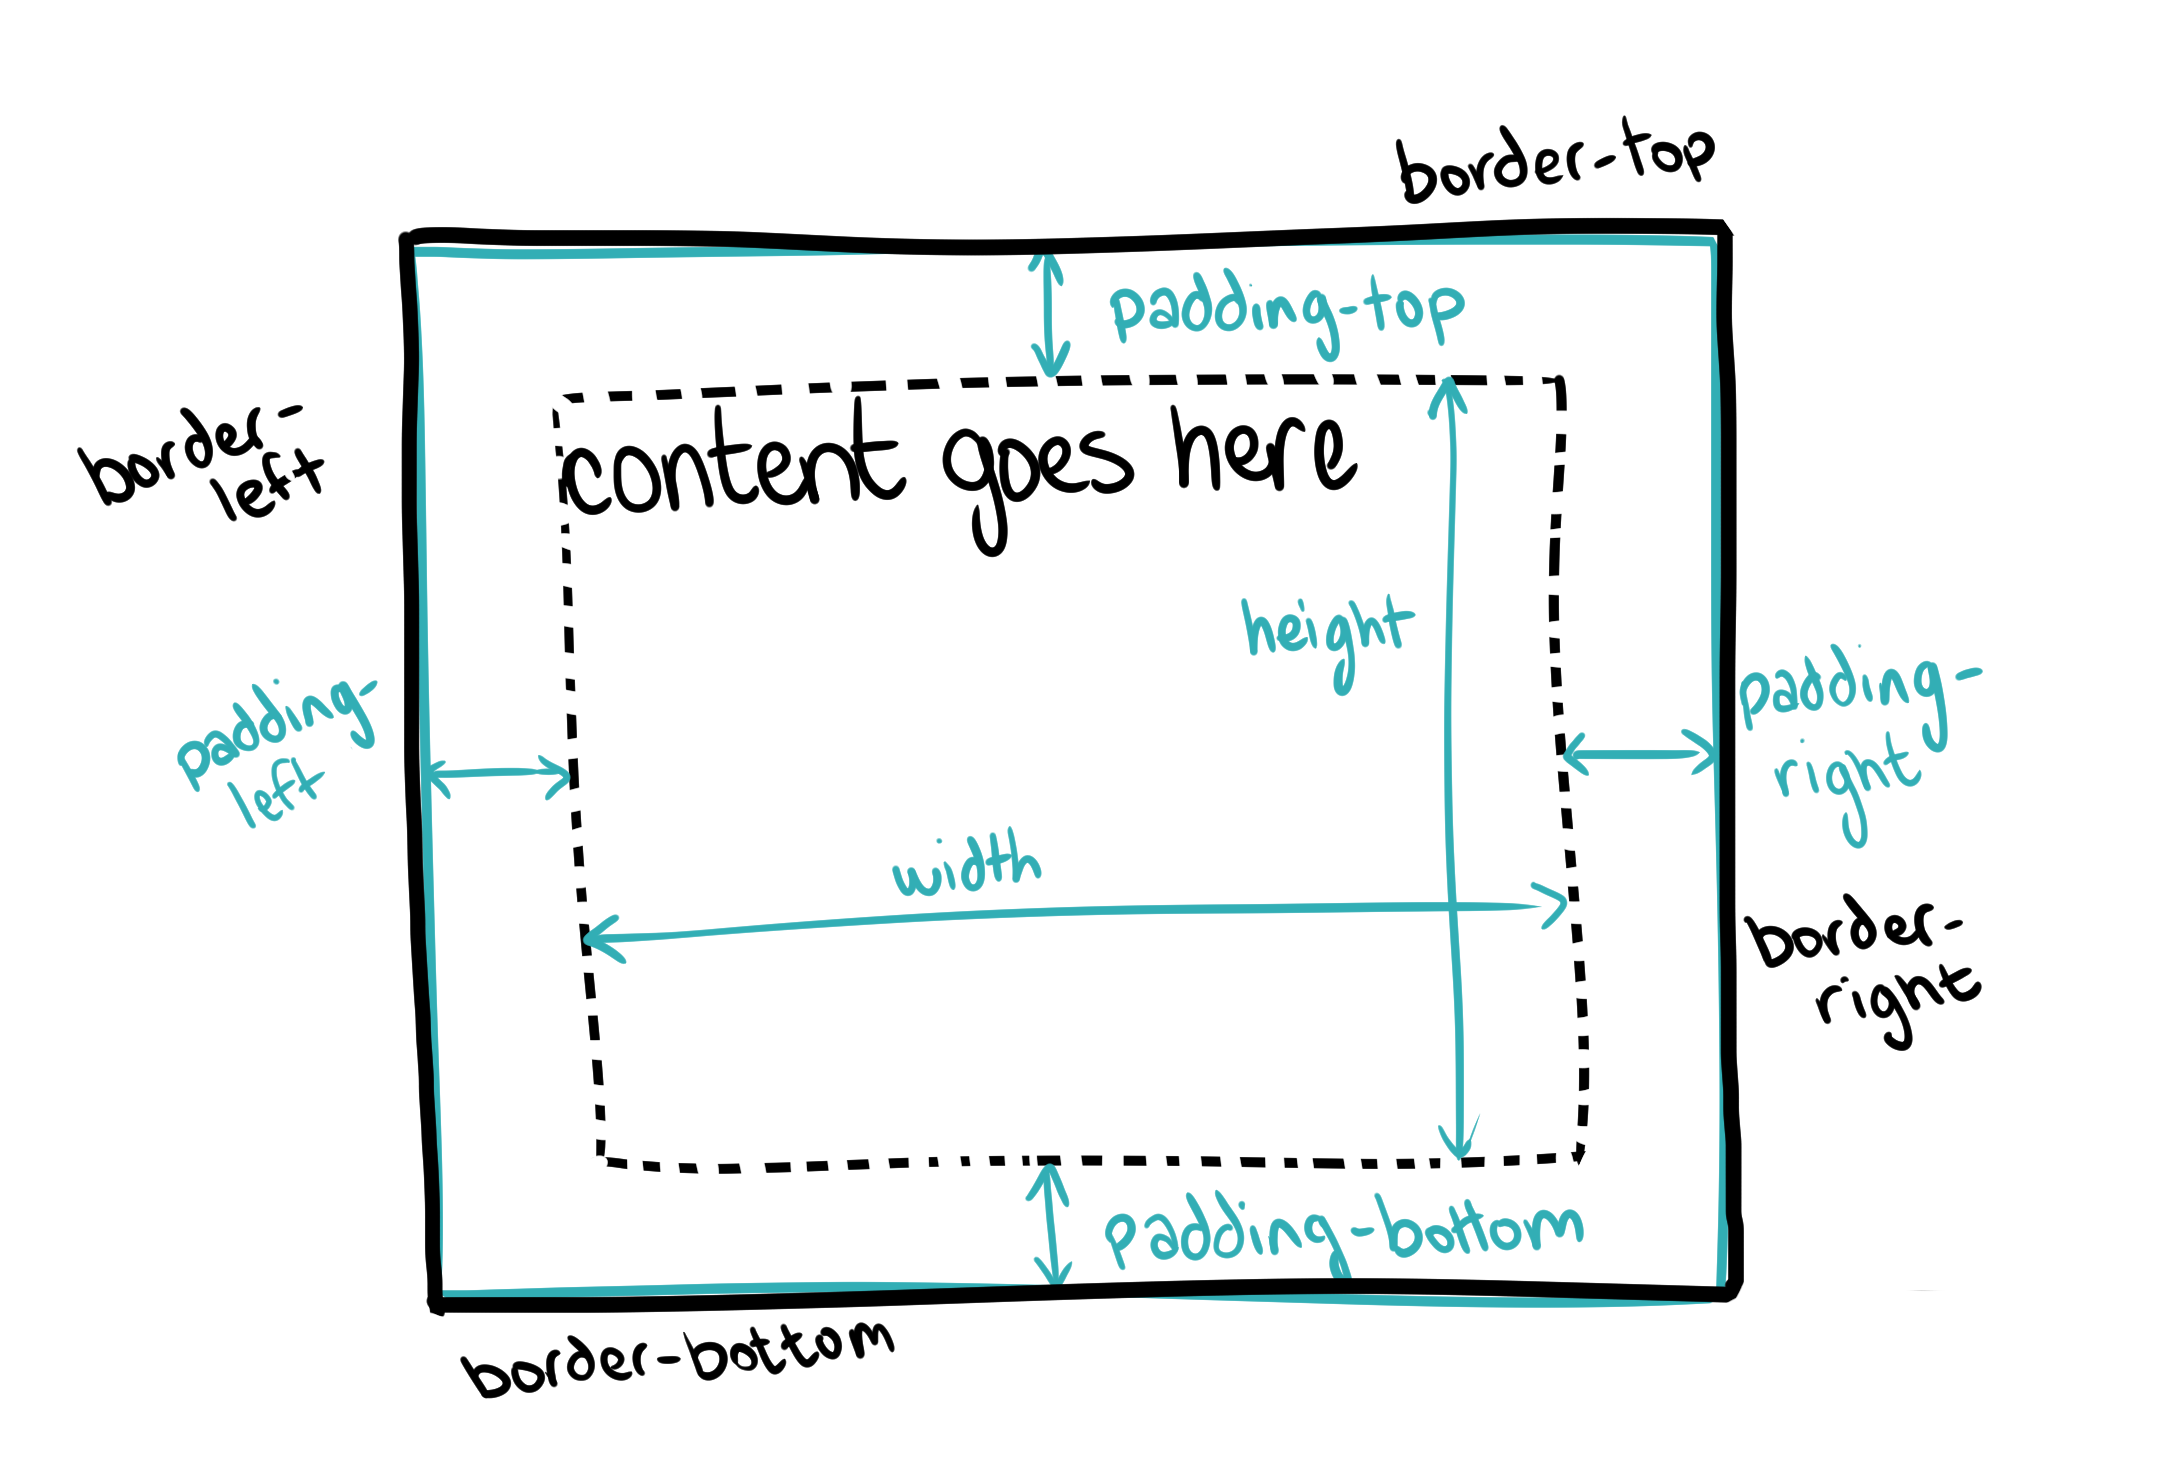 border-top
padding-top
content goes here
border-
left
height
padding-
left
padding-
right
width
border-
right
padding-bottom
border-bottom